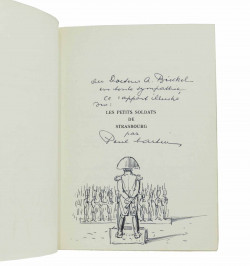 au Docteur A. Binckel
en toute sympathie
ce rapport illustré
LES PETITS SOLDATS
DE
STRASBOURG
par
Paul Martin